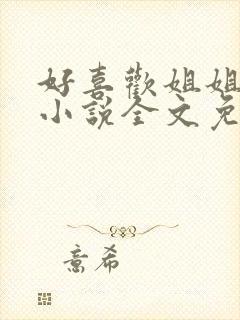 好喜歡姐姐
小說全文免
意希